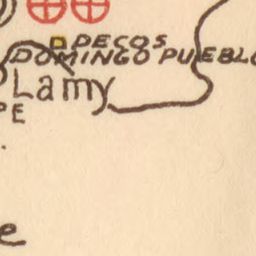 PECOS
DOMINGO PUEBLO
Lamy
PE
e